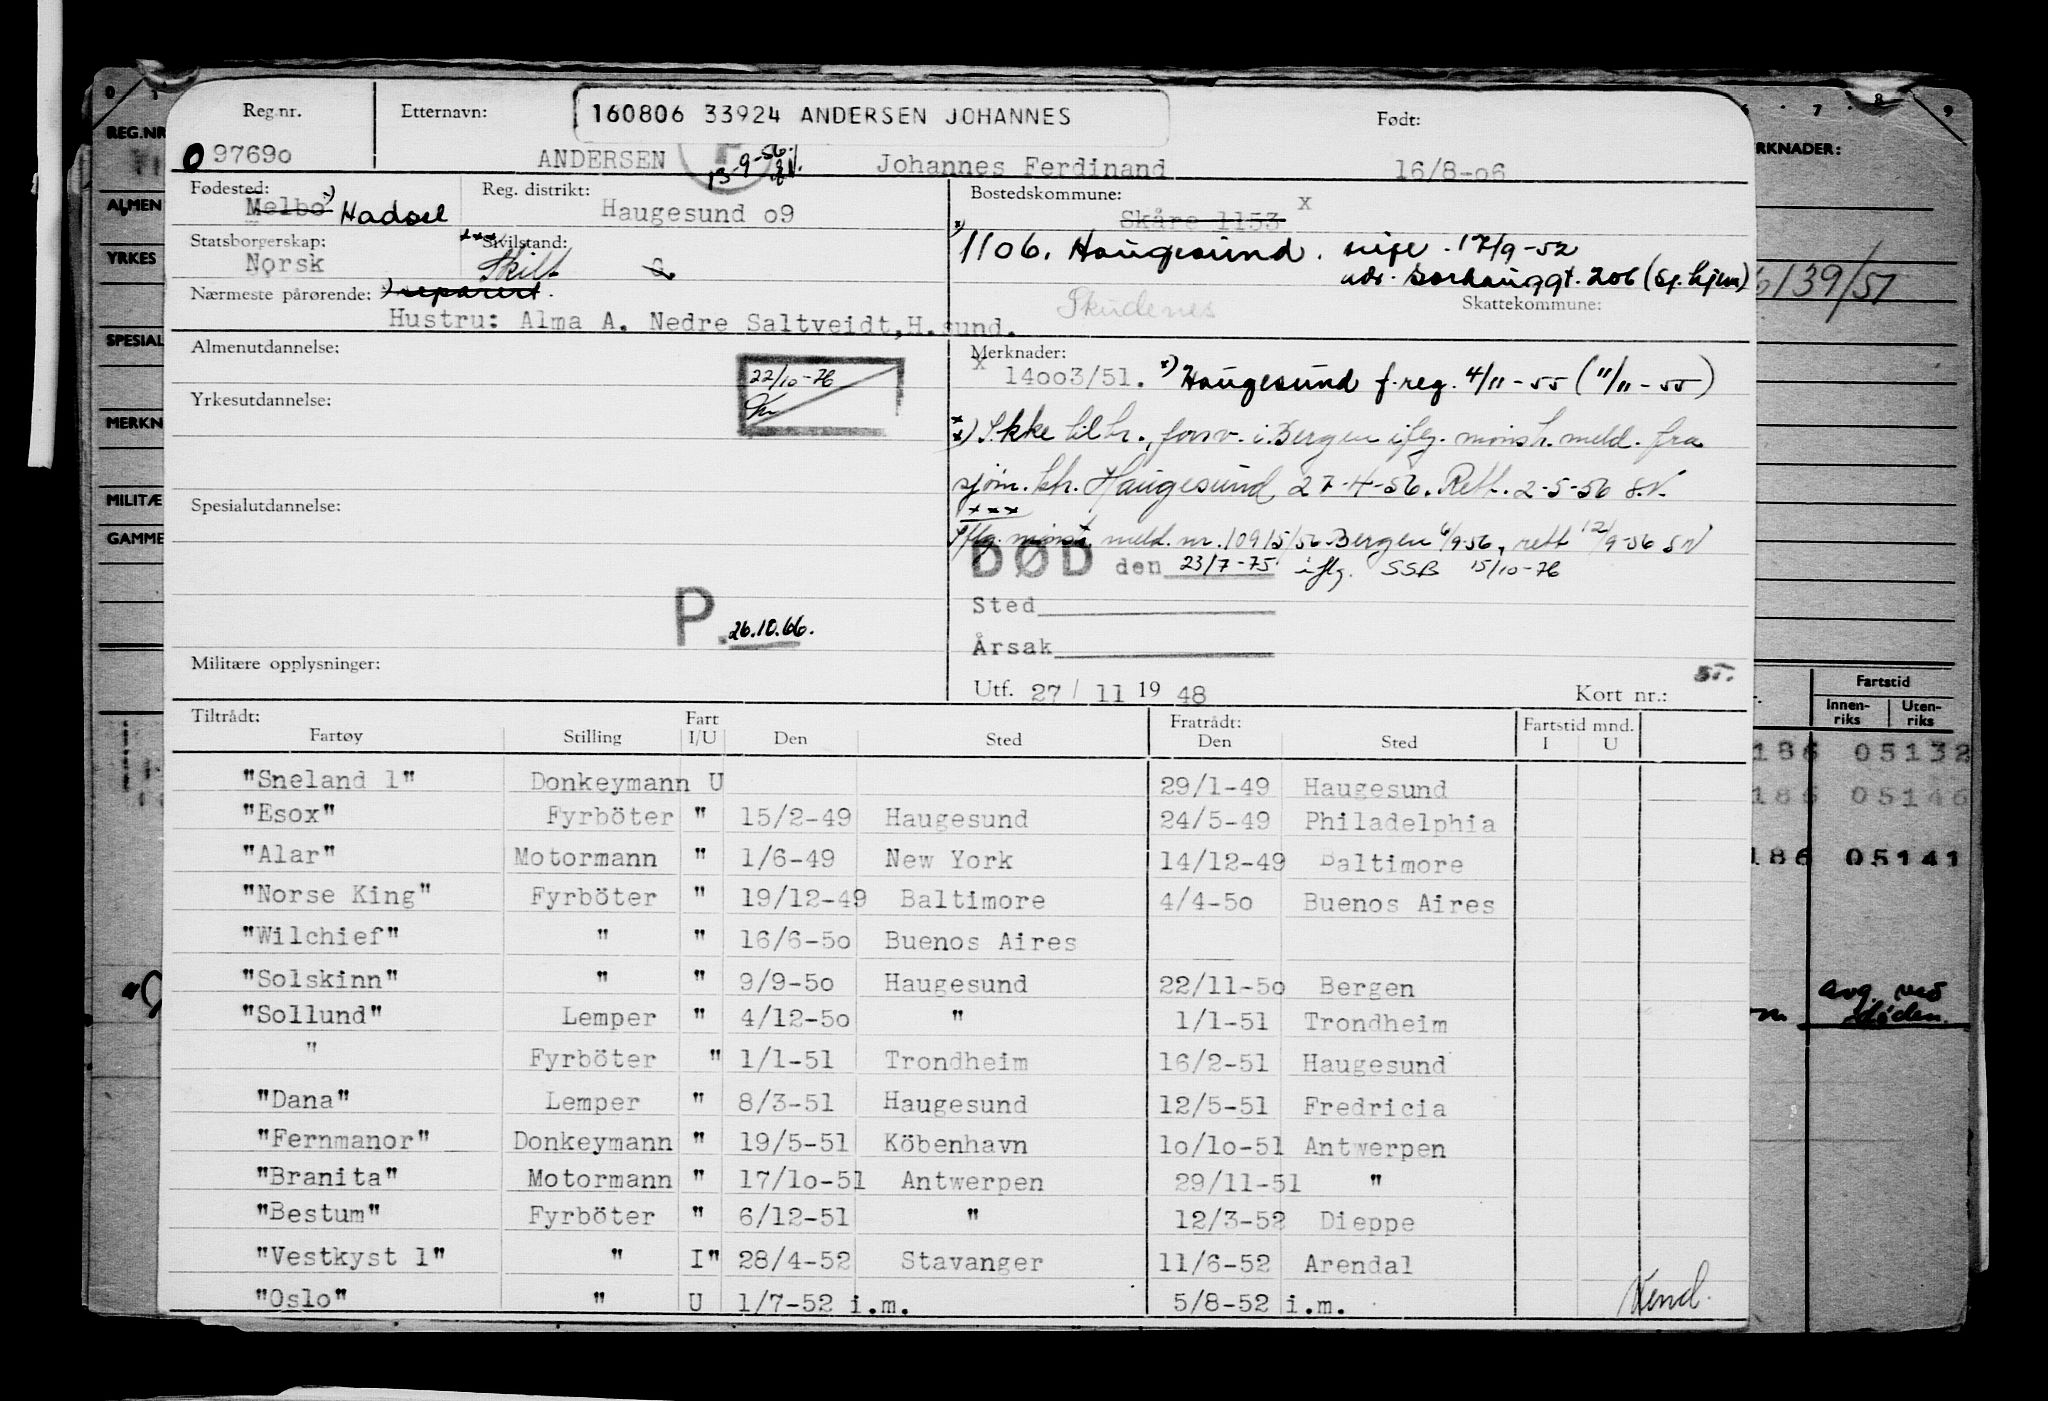 Reg.nr. Etternavn: 160806 33924 ANDERSEN JOHANNES Født:
0 9769o ANDERSEN 13-9-56 Johannes Ferdinand 16/8-o6
Fødested: Reg. distrikt: Bostedskommune:
Melbo x) Hadsel Haugesund o9 Skåre 1153 x
Statsborgerskap: xxx Sivilstand: x) 1106. Haugesund. 17/9-52
Norsk Skilt G. adr. Sørhauggt. 206 (Sj. hjem)
Nærmeste pårørende: x) separert. Skudenes Skattekommune:
Hustru: Alma A. Nedre Saltveidt, H.sund.
Almenutdannelse: Merknader:
22/10-76 x 14oo3/51. x) Haugesund f.reg. 4/11-55 (11/11-55)
Yrkesutdannelse:
x x) Ikke tilh. forsv. i Bergen iflg. mønstr. meld. fra
sjøm. ktr. Haugesund 27-4-56. Rett. 2-5-56 S.N.
Spesialutdannelse: xxx
Iflg. mønstr. meld. nr. 10915/56 Bergen 6/9-56, rett 12/9-56 SN
DØD den 23/7-75 iflg. SSB 15/10-76
Sted
P. 26.10.66.
Årsak
Militære opplysninger:
Utf. 27/ 11 19 48 Kort nr.:
Tiltrådt: Fratrådt: Fartstid mnd.
Fartøy Stilling Fart I/U Den Sted Den Sted I U
"Sneland 1" Donkeymann U 29/1-49 Haugesund
"Esox" Fyrböter " 15/2-49 Haugesund 24/5-49 Philadelphia
"Alar" Motormann " 1/6-49 New York 14/12-49 Baltimore
"Norse King" Fyrböter " 19/12-49 Baltimore 4/4-5o Buenos Aires
"Wilchief" " " 16/6-5o Buenos Aires
"Solskinn" " " 9/9-5o Haugesund 22/11-5o Bergen
"Sollund" Lemper " 4/12-5o " 1/1-51 Trondheim
" Fyrböter " 1/1-51 Trondheim 16/2-51 Haugesund
"Dana" Lemper " 8/3-51 Haugesund 12/5-51 Fredricia
"Fernmanor" Donkeymann " 19/5-51 Köbenhavn 1o/1o-51 Antwerpen
"Branita" Motormann " 17/1o-51 Antwerpen 29/11-51 "
"Bestum" Fyrböter " 6/12-51 " 12/3-52 Dieppe
"Vestkyst 1" " I" 28/4-52 Stavanger 11/6-52 Arendal
"Oslo" " U 1/7-52 i.m. 5/8-52 i.m. Vend.
REG.NR
ALMEN
YRKES
SPESIAL
MERKN
MILITÆ
GAMME
7 8 9
RKNADER:
139/51
Fartstid
Innen-riks Uten-riks
186 05132
186 05146
186 05141
avg. ved
døden.